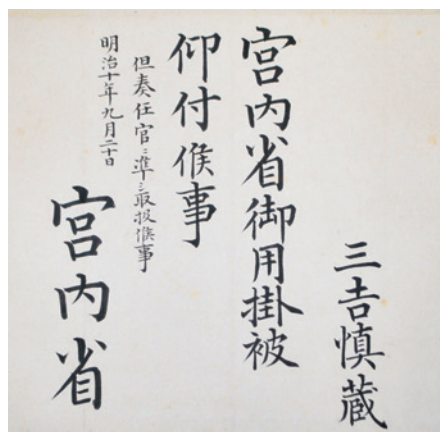 三吉慎蔵
宮内省御用掛被
仰付候事
但奏任官ニ準シ取扱候事
明治十年九月二十日
宮内省